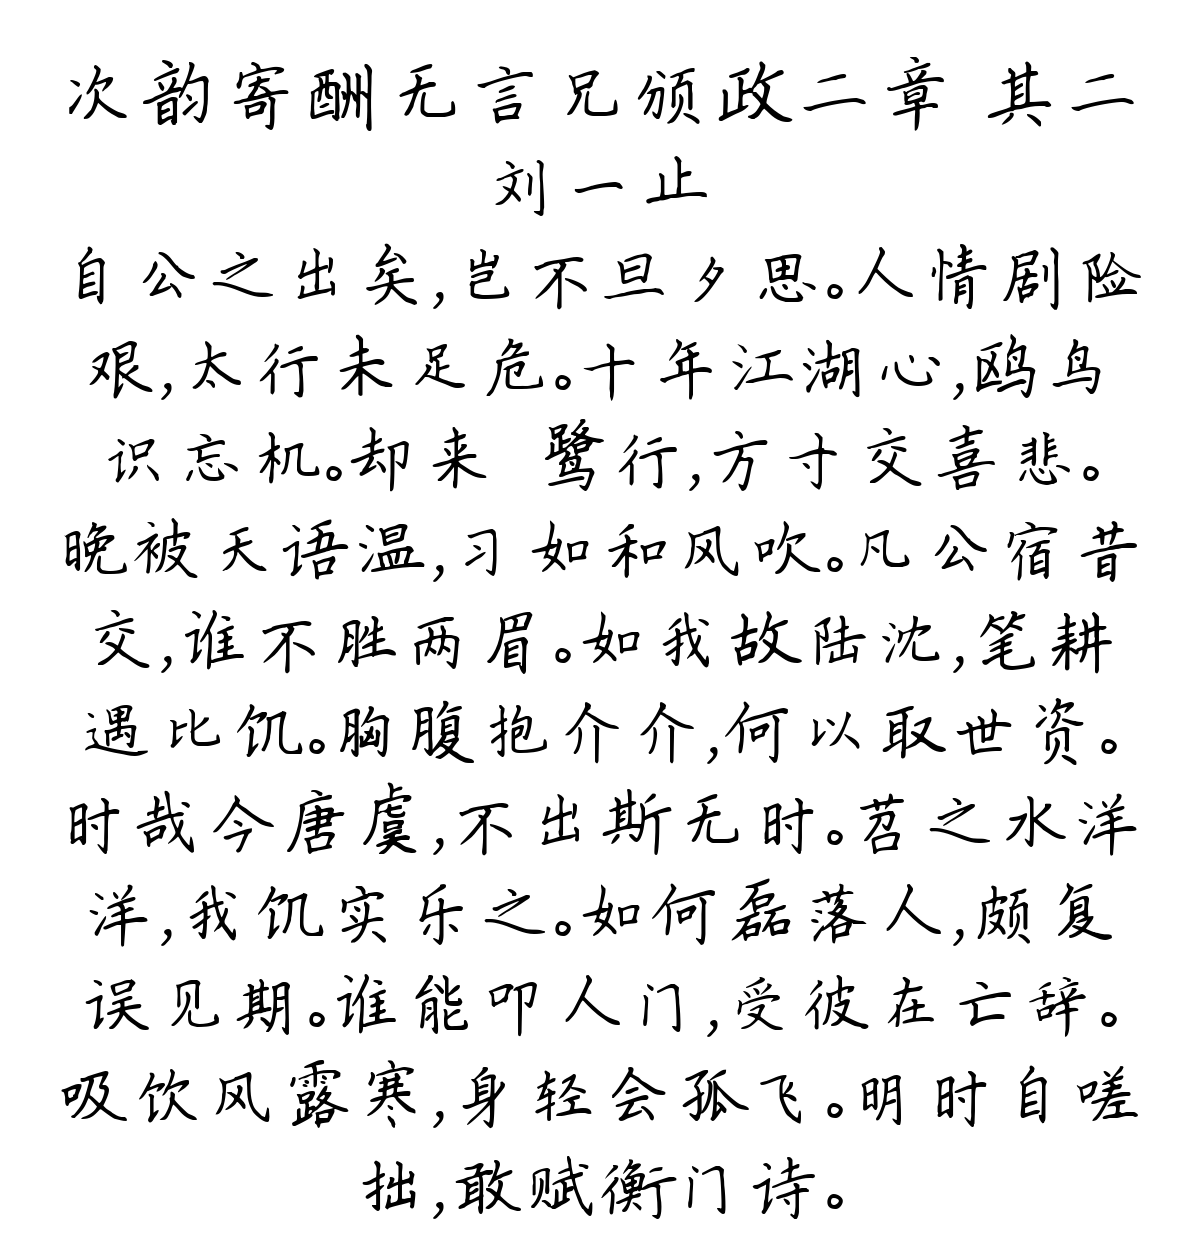 次韵寄酬无言兄颁政二章 其二
刘一止
自公之出矣,岂不旦夕思。人情剧险
艰,太行未足危。十年江湖心,鸥鸟
识忘机。却来 鹭行,方寸交喜悲。
晚被天语温,习如和风吹。凡公宿昔
交,谁不胜两眉。如我故陆沈,笔耕
遇比饥。胸腹抱介介,何以取世资。
时哉今唐虞,不出斯无时。苕之水洋
洋,我饥实乐之。如何磊落人,颇复
误见期。谁能叩人门,受彼在亡辞。
吸饮风露寒,身轻会孤飞。明时自嗟
拙,敢赋衡门诗。